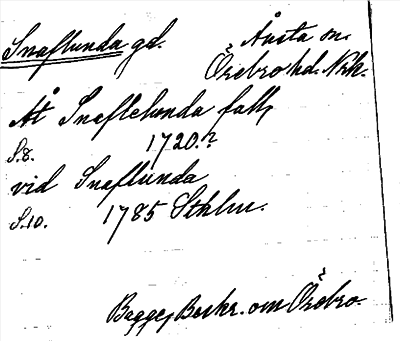 Snaflunda gd. Ånsta sn.
Örebro hd. Nrk.
Åt Snaflelunda fall,
S.8. 1720.?
vid Snaflunda
S.10. 1785 Sthlm.
Bagge, Beskr. om Örebro.